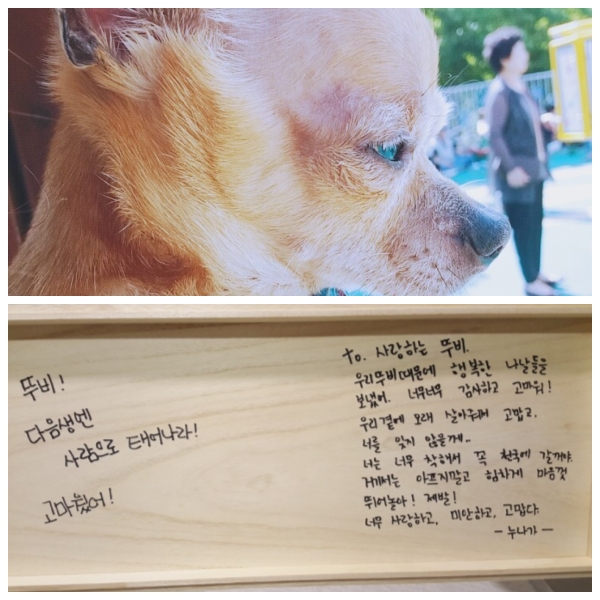 뚜비!
다음생엔
사람으로 태어나라!
고마웠어!
to. 사랑하는 뚜비.
우리뚜비때문에 행복한 나날들을
보냈어. 너무너무 감사하고 고마워!
우리곁에 오래 살아줘서 고맙고.
너를 잊지 않을께..
너는 너무 착해서 꼭 천국에 갈꺼야
거기서는 아프지말고 힘차게 마음껏
뛰어놀아! 제발!
너무 사랑하고, 미안하고, 고맙다.
- 누나가 -